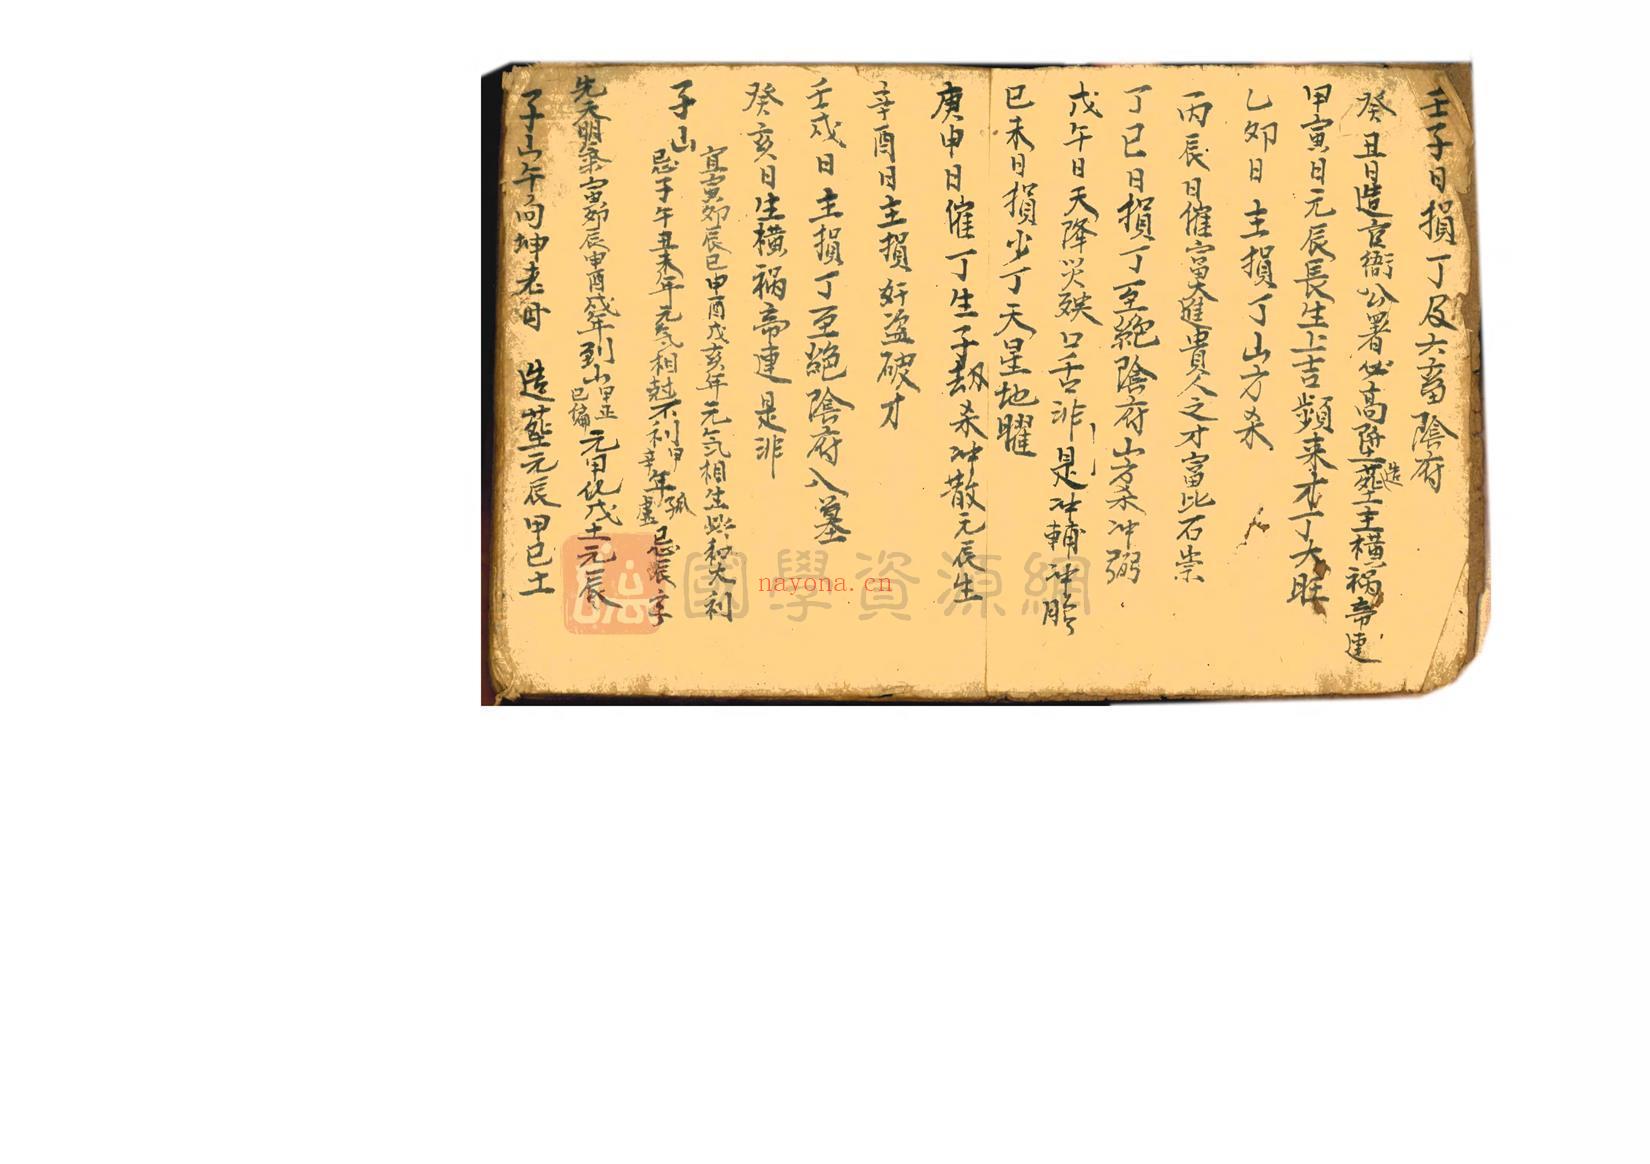 壬子日損丁及六畜陰府
癸丑日造官衙公署必高陞造葬主橫禍帝連
甲寅日元辰長生上吉頻來才丁大旺
乙卯日主損丁山方杀
丙辰日催富大進貴人之才富比石崇
丁巳日損丁至絕陰府山方杀冲弼
戊午日天降災殃口舌非是冲輔冲胎
巳未日損少丁天星地曜
庚申日催丁生子刼杀冲散元辰生
辛酉日主損奸盜破才
壬戌日主損丁至絕陰府入墓
癸亥日生橫禍帝連是非
子山
宜寅卯辰巳申酉戌亥年元氣相生興和大利
忌子午丑未年元氣相尅不利甲辛年孤虛忌辰字
先天明氣寅卯辰申酉戌年到山甲正巳偏元甲化戊土元辰
子山午向坤老母 造葬元辰甲巳土
國學資源網
nayona.cn